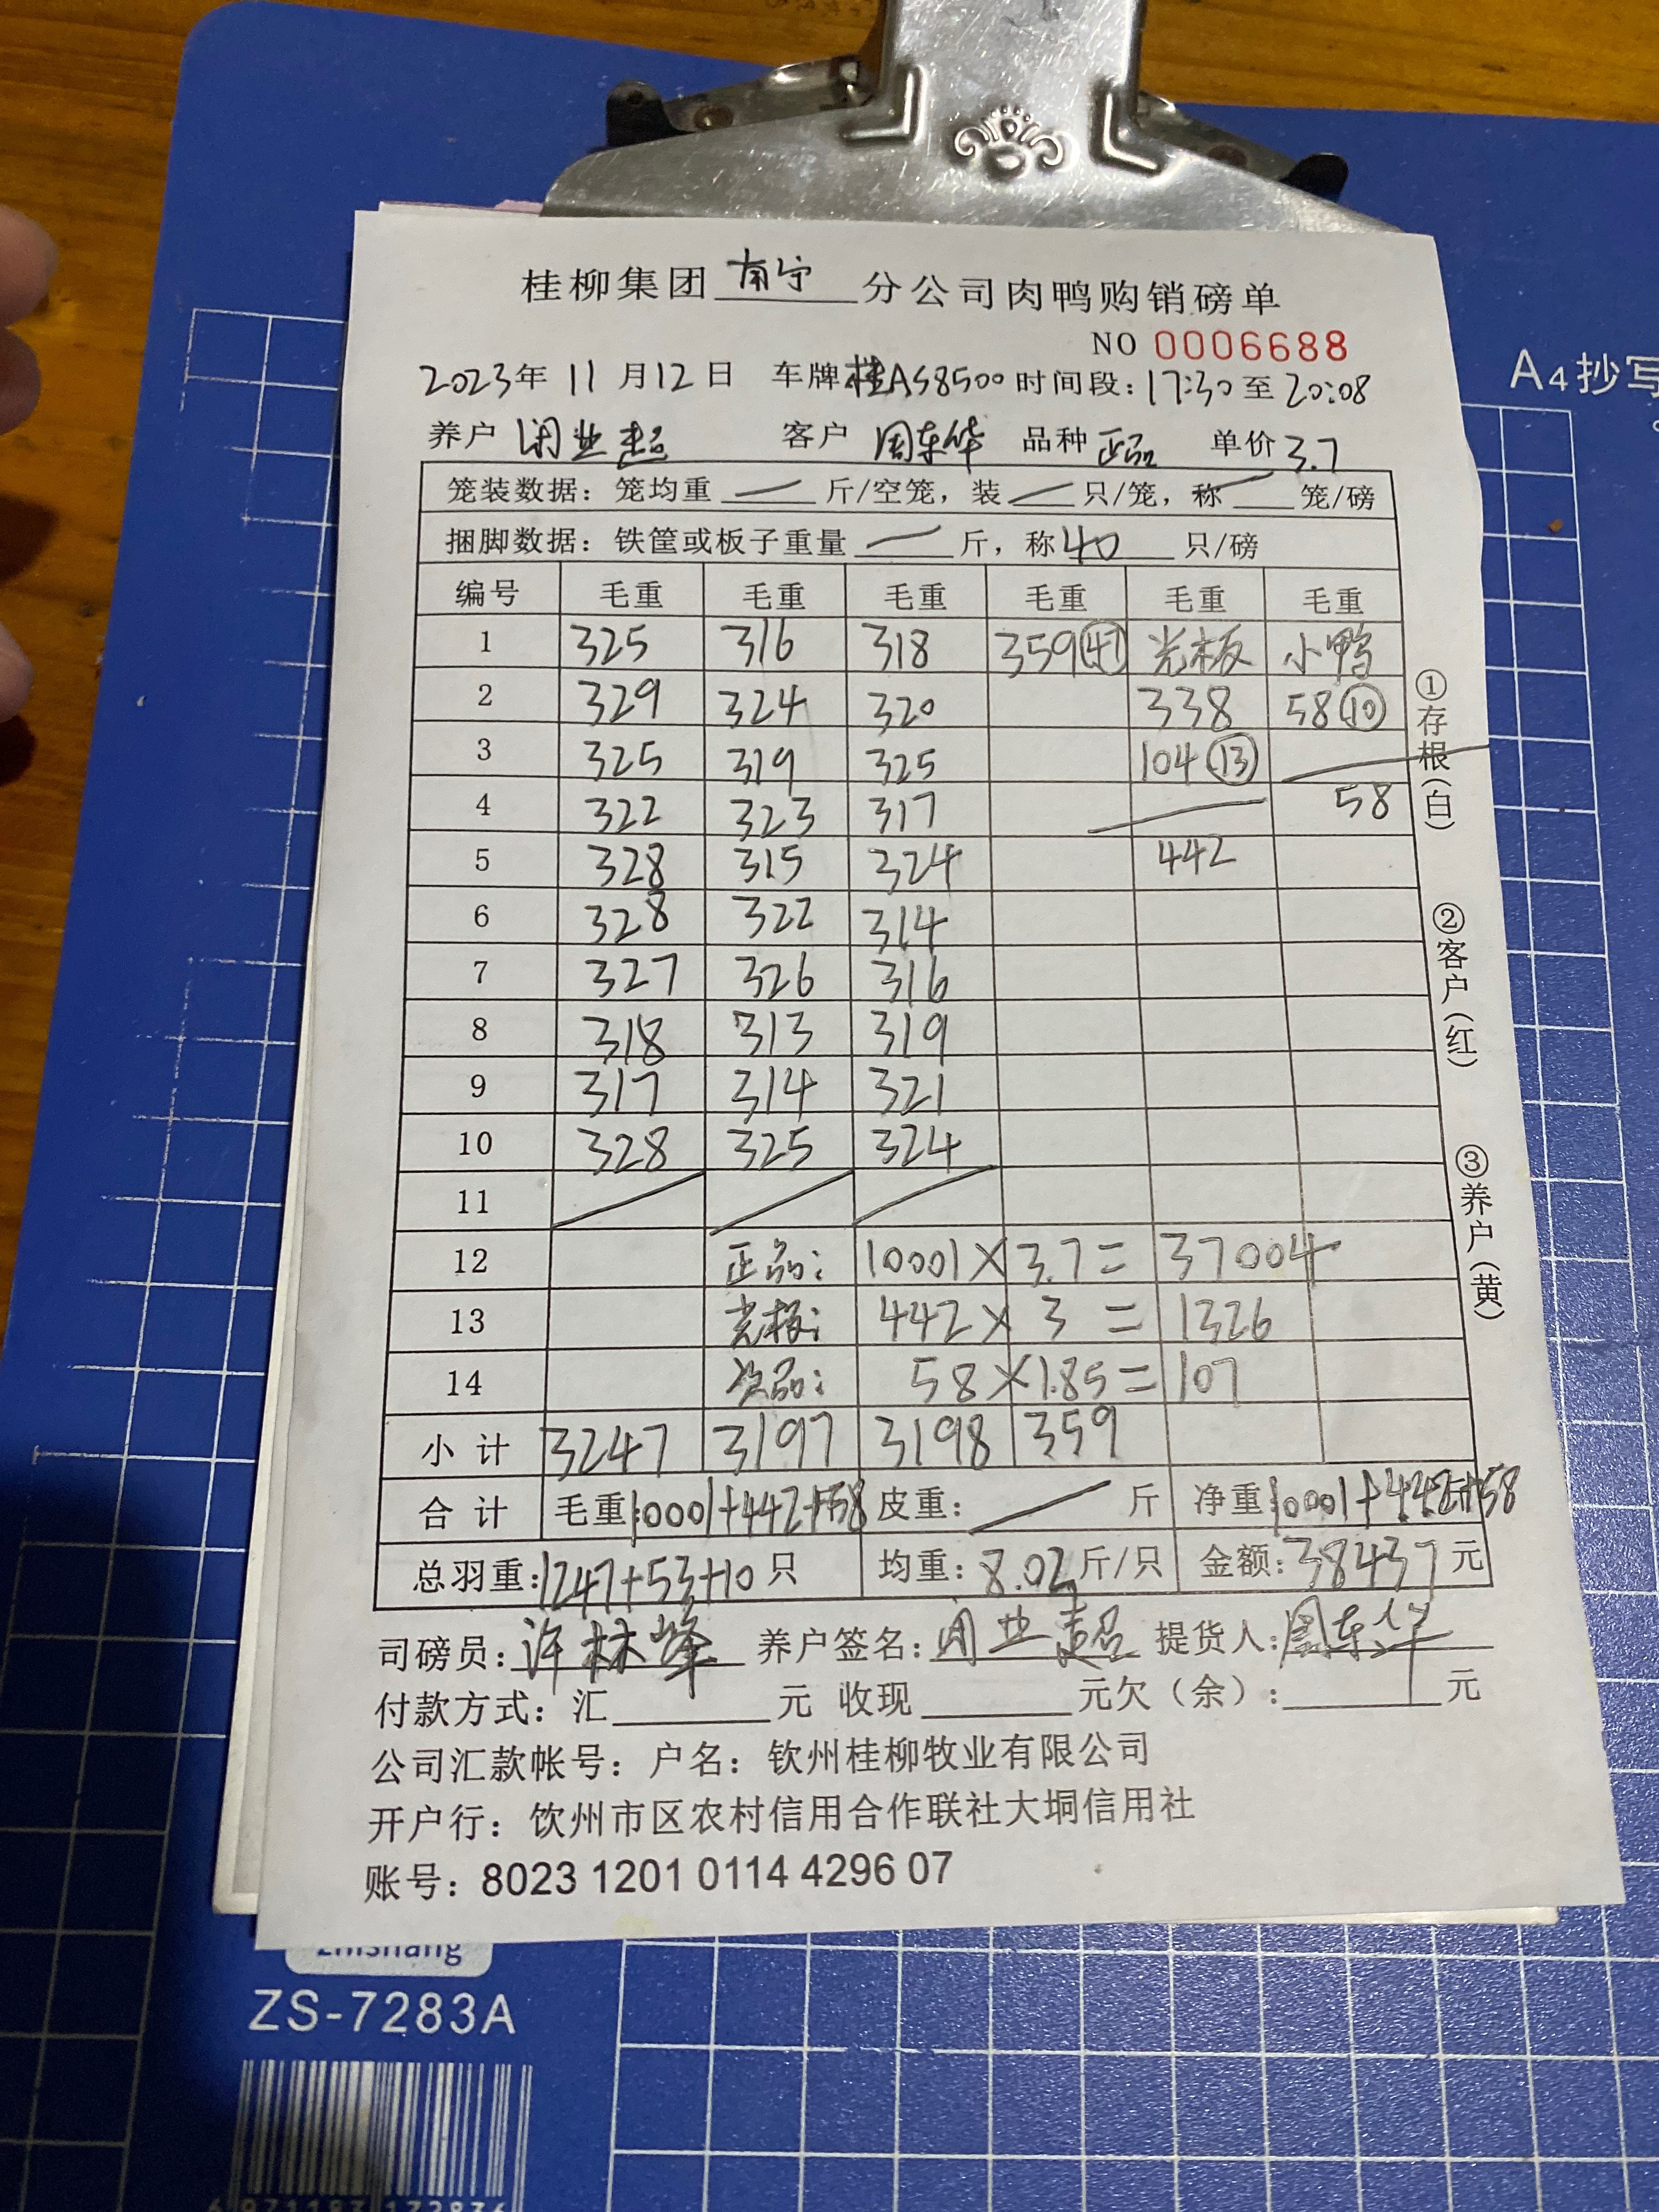 桂柳集团 南宁 分公司肉鸭购销磅单
NO 0006688
2023年 11 月 12 日 车牌 桂AS8500 时间段: 17:30 至 20:08
养户 闭业超 客户 周东华 品种 正品 单价 3.7
笼装数据: 笼均重 — 斤/空笼, 装 — 只/笼, 称 — 笼/磅
捆脚数据: 铁筐或板子重量 — 斤, 称 40 只/磅
编号 毛重 毛重 毛重 毛重 毛重 毛重
1 325 316 318 359 47 光板 小鸭
2 329 324 320 338 58 10
3 325 319 325 104 13
4 322 323 317 58
5 328 315 324 442
6 328 322 314
7 327 326 316
8 318 313 319
9 317 314 321
10 328 325 324
11
12 正品: 10001×3.7= 37004
13 光板: 442×3 = 1326
14 次品: 58×1.85= 107
小计 3247 3197 3198 359
合计 毛重: 10001+442+58 皮重: — 斤 净重: 10001+442+58
总羽重: 1247+53+10 只 均重: 8.02 斤/只 金额: 38437 元
司磅员: 许林峰 养户签名: 闭业超 提货人: 周东华
付款方式: 汇 元 收现 元欠(余): 元
公司汇款帐号: 户名: 钦州桂柳牧业有限公司
开户行: 饮州市区农村信用合作联社大垌信用社
账号: 8023 1201 0114 4296 07
①存根(白)
②客户(红)
③养户(黄)
A4抄写
zhishang
ZS-7283A